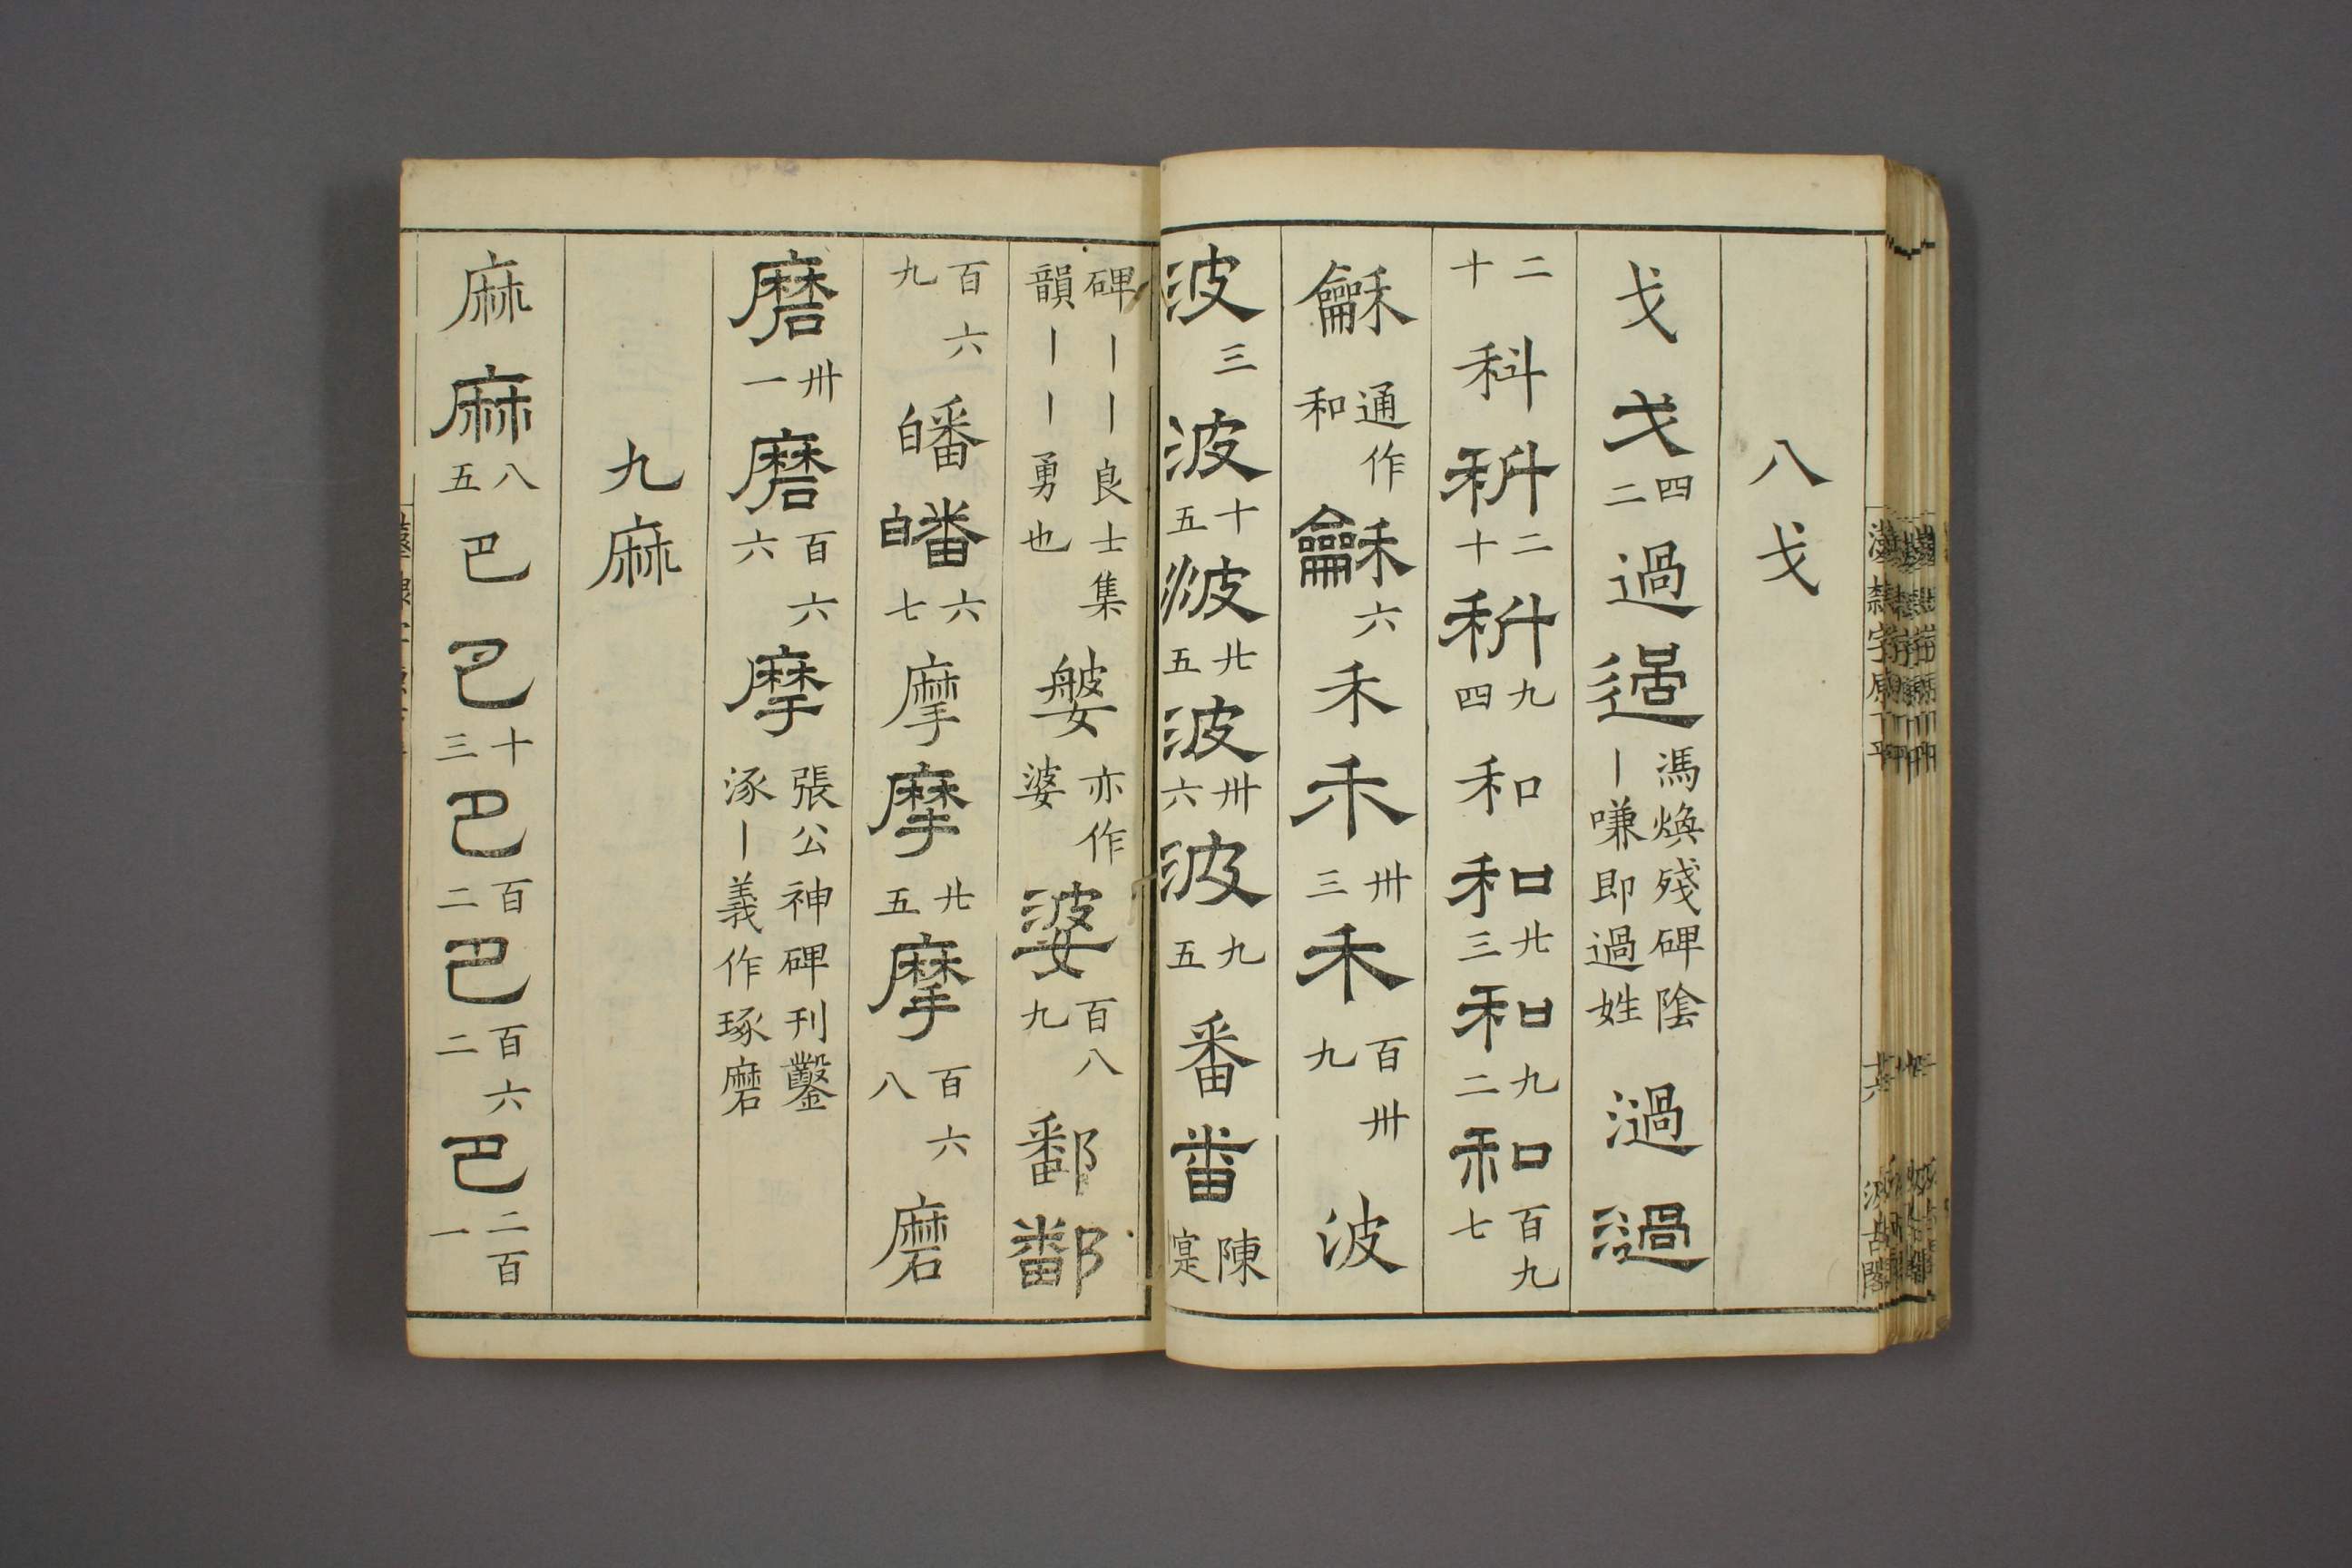 八戈
戈戈四二過過馮煥殘碑陰｜嗛即過姓濄濄
二十科科二十科九四和和廿三和九二和百九七
龢通作和龢六禾禾卅三禾百卅九波
波三波十五波廿五波卅六波九五番番陳寔
碑｜｜良士集韻｜｜勇也媻亦作婆婆百八九鄱鄱
百六九皤皤六七摩摩廿五摩百六八磨
磨卅一磨百六六摩張公神碑刊鑿涿｜義作琢磨
九麻
麻麻八五巴巴十三巴百二巴百六二巴二百一
漢隸字原 丁平 十六 汲古閣